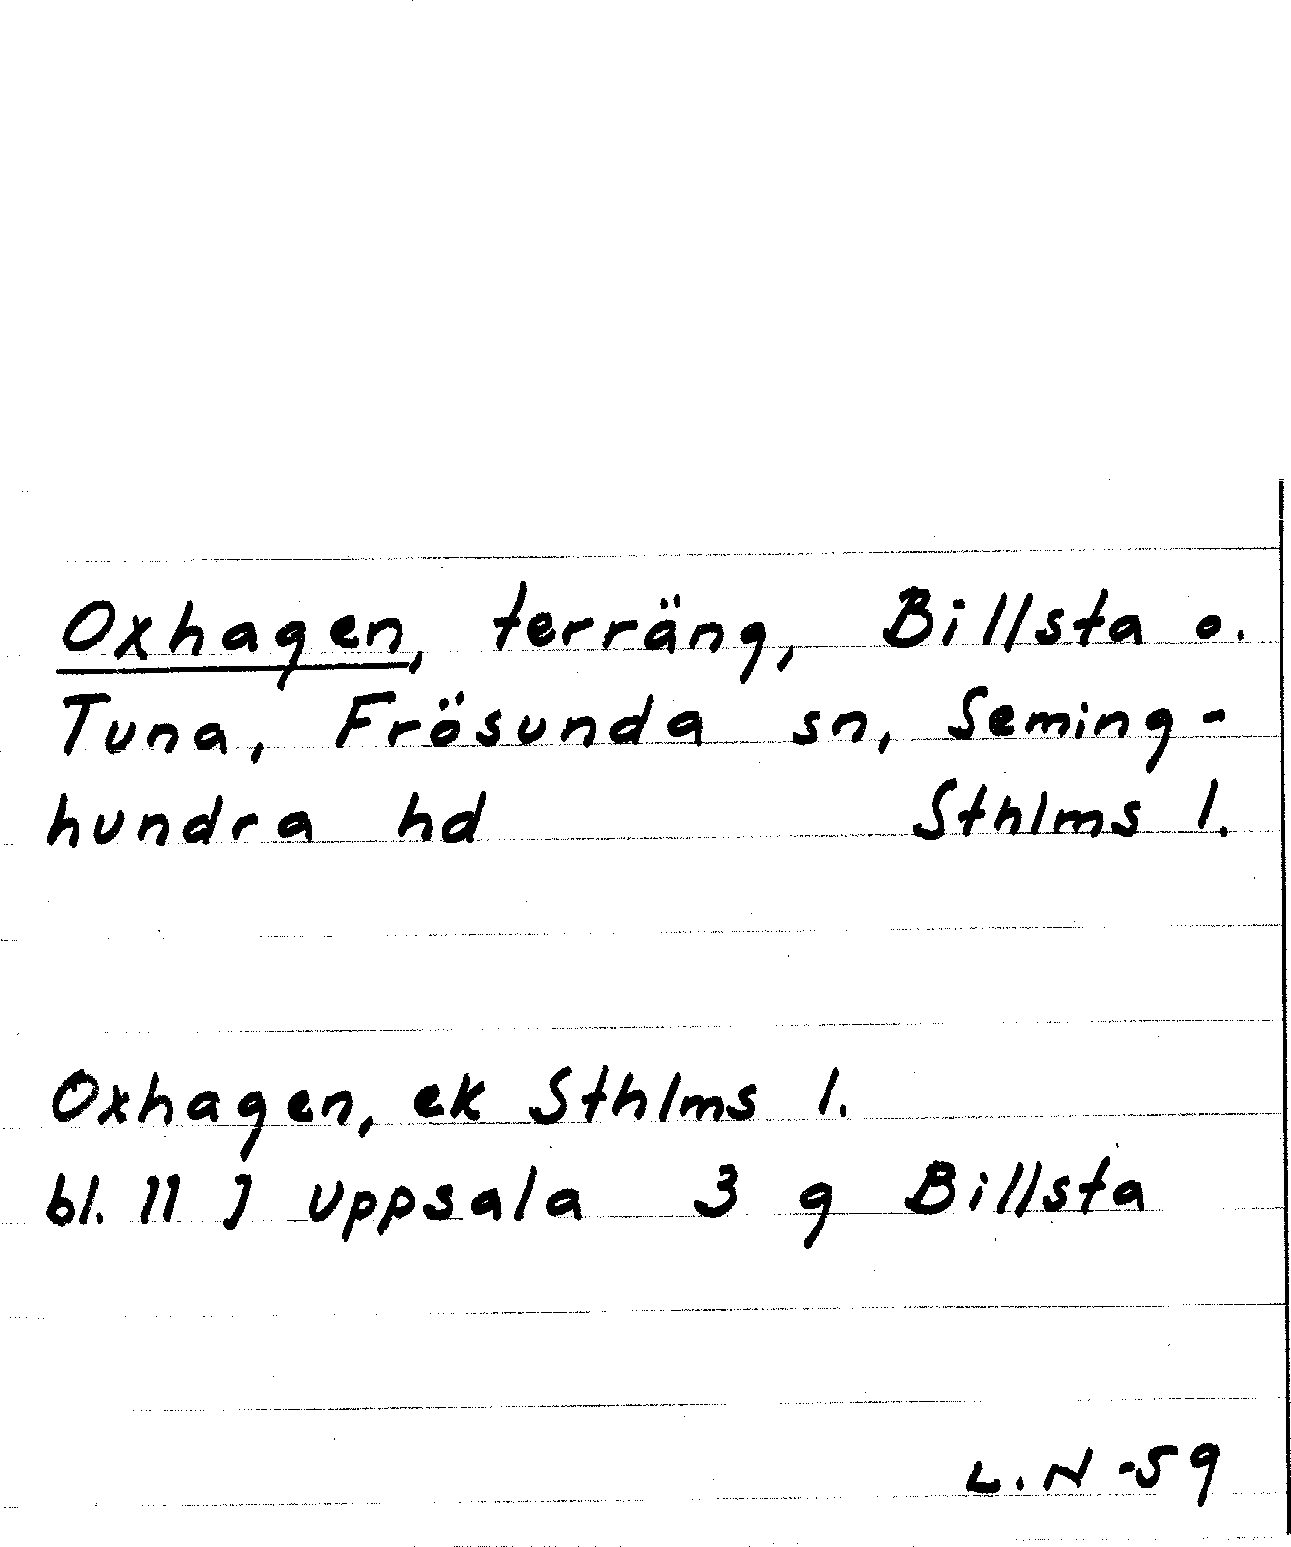 Oxhagen, terräng, Billsta o.
Tuna, Frösunda sn, Seming-
hundra hd Sthlms l.
Oxhagen, ek Sthlms l.
bl. 11 J Uppsala 3 g Billsta
L.N -59